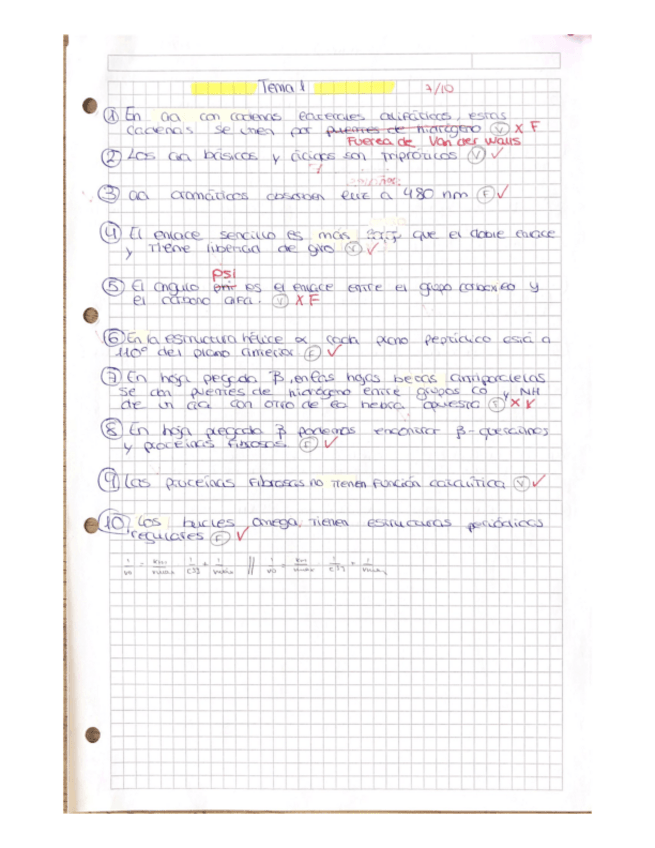 Tema 1 7/10
① En aa con cadenas laterales alifáticas, estas
cadenas se unen por puentes de hidrógeno (V) X F
Fuerza de Van der Walls
② Los aa básicos y ácidos son tripróticos (V) ✓
③ aa aromáticos absorben luz a 480 nm (F) ✓
④ El enlace sencillo es más que el doble enlace
y tiene libertad de giro (V) ✓
psi
⑤ El ángulo es el enlace entre el grupo carboxilo y
el carbono alfa. (V) X F
⑥ En la estructura hélice α cada plano peptídico está a
110° del plano anterior (F) ✓
⑦ En hoja pegada β, en las hojas betas antiparalelas
se dan puentes de hidrógeno entre grupos CO y NH
de un aa con otro de la hebra opuesta (F) X V
⑧ En hoja plegada β podemos encontrar β-queratinas
y proteinas fibrosas (F) ✓
⑨ Las proteínas fibrosas no tienen función catalítica (V) ✓
⑩ Los bucles omega, tienen estructuras periódicas
regulares (F) ✓